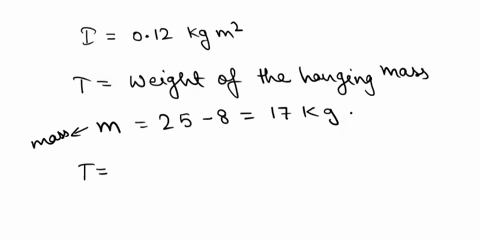 I = 0.12 kg m²
T = Weight of the hanging mass
mass← m = 25 - 8 = 17 Kg.
T=